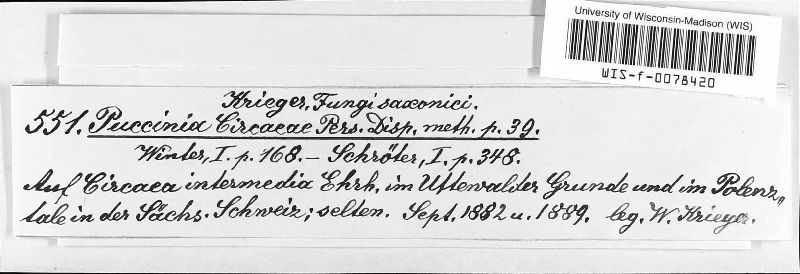 University of Wisconsin-Madison (WIS)
WIS-f-0078420
Krieger, Fungi saxonici.
551. Puccinia Circaeae Pers. Disp. meth. p. 39.
Winter, I. p. 168. – Schröter, I. p. 348.
Auf Circaea intermedia Ehrh. im Uttewalder Grunde und im Polenz„
tale in der Sächs. Schweiz; selten. Sept. 1882 u. 1889. leg. W. Krieger.